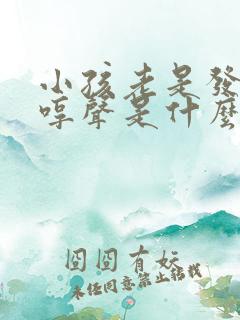 小孩老是發
哼聲是什麼
囧囧有妖
未經同意禁止轉載